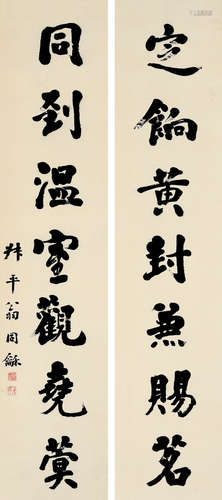 宣餉黃封兼賜茗
同到溫室觀堯蓂
叔平翁同龢